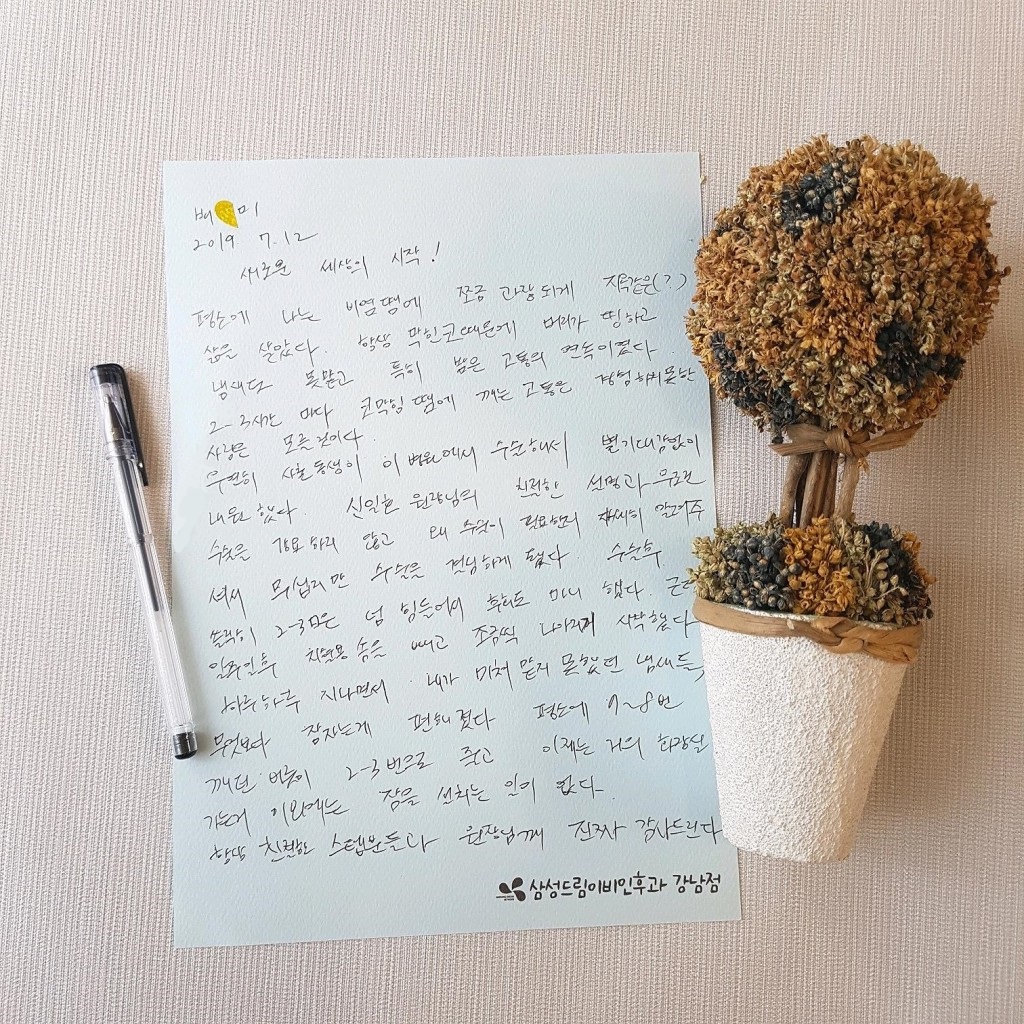 배 미
2019 7.12
새로운 세상의 시작!
평소에 나는 비염땜에 쪼금 과장되게 지옥같은(?)
삶을 살았다. 항상 막힌코때문에 머리가 띵하고
냄새다 못맡고 특히 밤은 고통의 연속이였다.
2-3시간 마다 코막힘 땜에 깨는 고통은 경험하지못한
사람은 모를것이다.
우연히 사촌동생이 이 병원에서 수술해서 별기대감없이
내원했다. 신일호 원장님의 친절한 설명과 무조건
수술을 강요하지 않고 왜 수술이 필요한지 자세히 알려주
셔서 무섭지만 수술을 결심하게 됐다. 수술후
솔직히 2-3일은 넘 힘들어서 후회도 마니 했다. 근데
일주일후 치료용 솜을 빼고 조금씩 나아지기 시작했다
하루하루 지나면서 내가 미처 맡지 못했던 냄새들,
무엇보다 잠자는게 편해졌다 평소에 7~8번
깨던 버릇이 2-3번으로 줄고 이제는 거의 화장실
가는거 이외에는 잠을 설치는 일이 없다.
항상 친절한 스텝분들과 원장님께 진짜 감사드린다
삼성드림이비인후과 강남점